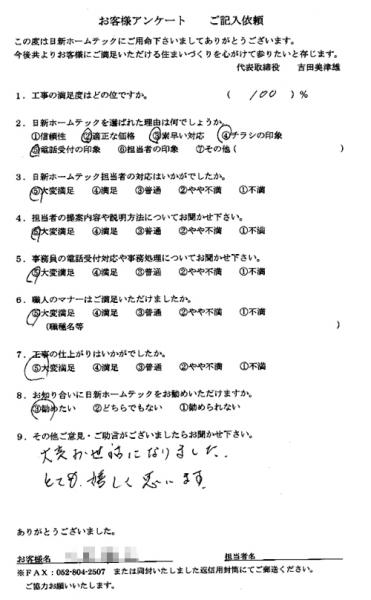 お客様アンケート　　ご記入依頼
この度は日新ホームテックにご用命下さいましてありがとうございます。
今後共よりお客様にご満足いただける住まいづくりを心がけて参りたいと存じます。
代表取締役　　吉田美津雄
１．工事の満足度はどの位ですか。　（　100　）％
２．日新ホームテックを選ばれた理由は何でしょうか。
①信頼性　②適正な価格　③素早い対応　④チラシの印象
⑤電話受付の印象　⑥担当者の印象　⑦その他（　　　）
３．日新ホームテック担当者の対応はいかがでしたか。
⑤大変満足　④満足　③普通　②やや不満　①不満
４．担当者の提案内容や説明方法についてお聞かせ下さい。
⑤大変満足　④満足　③普通　②やや不満　①不満
５．事務員の電話受付対応や事務処理についてお聞かせ下さい。
⑤大変満足　④満足　③普通　②やや不満　①不満
６．職人のマナーはご満足いただけましたか。
⑤大変満足　④満足　③普通　②やや不満　①不満
（職種名等　　　）
７．工事の仕上がりはいかがでしたか。
⑤大変満足　④満足　③普通　②やや不満　①不満
８．お知り合いに日新ホームテックをお勧めいただけますか。
③勧めたい　②どちらでもない　①勧められない
９．その他ご意見・ご助言がございましたらお聞かせ下さい。
大変お世話になりました。
とても嬉しく思います
ありがとうございました。
お客様名　　　担当者名
※ＦＡＸ：052-804-2507　または同封いたしました返信用封筒にてご郵送ください。
ご協力お願いいたします。